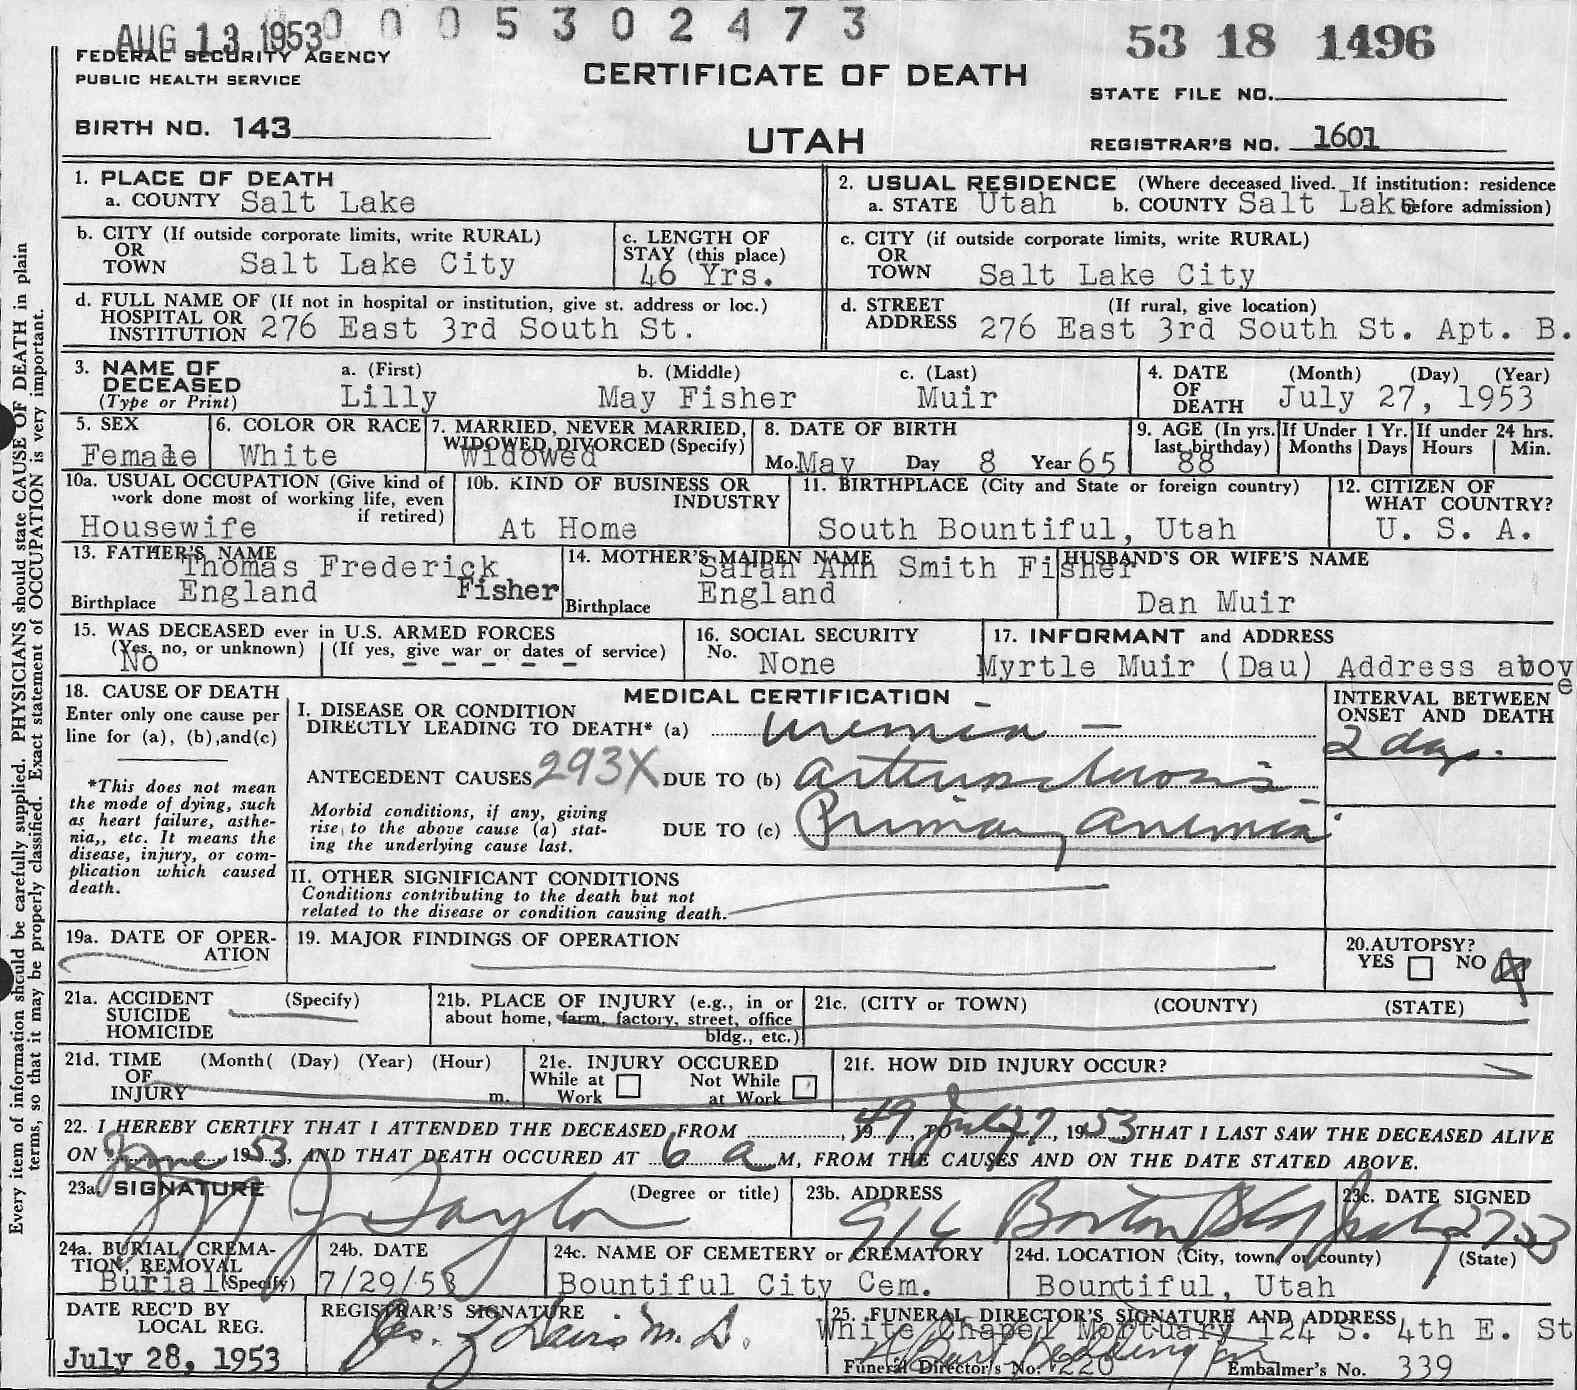 AUG 13 1953
0 0 0 5 3 0 2 4 7 3
53 18 1496
FEDERAL SECURITY AGENCY
PUBLIC HEALTH SERVICE
CERTIFICATE OF DEATH
STATE FILE NO.
BIRTH NO. 143
UTAH
REGISTRAR'S NO. 1601
1. PLACE OF DEATH
a. COUNTY Salt Lake
2. USUAL RESIDENCE (Where deceased lived. If institution: residence before admission)
a. STATE Utah b. COUNTY Salt Lake
b. CITY (If outside corporate limits, write RURAL)
OR
TOWN Salt Lake City
c. LENGTH OF
STAY (this place)
46 Yrs.
c. CITY (if outside corporate limits, write RURAL)
OR
TOWN Salt Lake City
d. FULL NAME OF (If not in hospital or institution, give st. address or loc.)
HOSPITAL OR
INSTITUTION 276 East 3rd South St.
d. STREET (If rural, give location)
ADDRESS 276 East 3rd South St. Apt. B.
3. NAME OF
DECEASED
(Type or Print)
a. (First) b. (Middle) c. (Last)
Lilly May Fisher Muir
4. DATE (Month) (Day) (Year)
OF
DEATH July 27, 1953
5. SEX
Female
6. COLOR OR RACE
White
7. MARRIED, NEVER MARRIED,
WIDOWED, DIVORCED (Specify)
Widowed
8. DATE OF BIRTH
Mo. May Day 8 Year 65
9. AGE (In yrs.
last birthday)
88
If Under 1 Yr.
Months Days
If under 24 hrs.
Hours Min.
10a. USUAL OCCUPATION (Give kind of
work done most of working life, even
if retired)
Housewife
10b. KIND OF BUSINESS OR
INDUSTRY
At Home
11. BIRTHPLACE (City and State or foreign country)
South Bountiful, Utah
12. CITIZEN OF
WHAT COUNTRY?
U. S. A.
13. FATHER'S NAME
Thomas Frederick
Fisher
Birthplace England
14. MOTHER'S MAIDEN NAME
Sarah Ann Smith Fisher
Birthplace England
HUSBAND'S OR WIFE'S NAME
Dan Muir
15. WAS DECEASED ever in U.S. ARMED FORCES
(Yes, no, or unknown) (If yes, give war or dates of service)
No - - - - -
16. SOCIAL SECURITY
No. None
17. INFORMANT and ADDRESS
Myrtle Muir (Dau) Address above
18. CAUSE OF DEATH
Enter only one cause per
line for (a), (b),and(c)
*This does not mean
the mode of dying, such
as heart failure, asthe-
nia,, etc. It means the
disease, injury, or com-
plication which caused
death.
MEDICAL CERTIFICATION
I. DISEASE OR CONDITION
DIRECTLY LEADING TO DEATH* (a) Uremia
INTERVAL BETWEEN
ONSET AND DEATH
2 days.
ANTECEDENT CAUSES 293X DUE TO (b) Arteriosclerosis
Morbid conditions, if any, giving
rise to the above cause (a) stat-
ing the underlying cause last.
DUE TO (c) Primary anemia
II. OTHER SIGNIFICANT CONDITIONS
Conditions contributing to the death but not
related to the disease or condition causing death.
19a. DATE OF OPER-
ATION
19. MAJOR FINDINGS OF OPERATION
20. AUTOPSY?
YES NO X
21a. ACCIDENT (Specify)
SUICIDE
HOMICIDE
21b. PLACE OF INJURY (e.g., in or
about home, farm, factory, street, office
bldg., etc.)
21c. (CITY or TOWN) (COUNTY) (STATE)
21d. TIME (Month( (Day) (Year) (Hour)
OF
INJURY m.
21e. INJURY OCCURED
While at Work Not While at Work
21f. HOW DID INJURY OCCUR?
22. I HEREBY CERTIFY THAT I ATTENDED THE DECEASED FROM , 1949, TO July 27, 1953 THAT I LAST SAW THE DECEASED ALIVE
ON June 1953, AND THAT DEATH OCCURED AT 6 a M, FROM THE CAUSES AND ON THE DATE STATED ABOVE.
23a. SIGNATURE (Degree or title)
J Taylor
23b. ADDRESS
916 Boston Bldg
23c. DATE SIGNED
July 27 53
24a. BURIAL, CREMA-
TION, REMOVAL
(Specify)
Burial
24b. DATE
7/29/53
24c. NAME OF CEMETERY or CREMATORY
Bountiful City Cem.
24d. LOCATION (City, town, or county) (State)
Bountiful, Utah
DATE REC'D BY
LOCAL REG.
July 28, 1953
REGISTRAR'S SIGNATURE
Davis M.D.
25. FUNERAL DIRECTOR'S SIGNATURE AND ADDRESS
White Chapel Mortuary 124 S. 4th E. St
Funeral Director's No. 220 Embalmer's No. 339
Every item of information should be carefully supplied. PHYSICIANS should state CAUSE OF DEATH in plain
terms, so that it may be properly classified. Exact statement of OCCUPATION is very important.